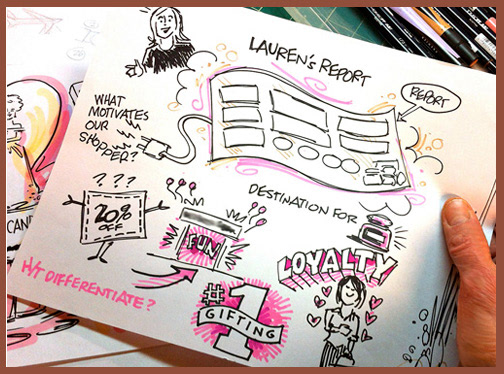 LAUREN'S REPORT
REPORT
WHAT
MOTIVATES
OUR
SHOPPER?
???
20%
OFF
FUN
DESTINATION FOR
LOYALTY
#1
GIFTING
H/T DIFFERENTIATE?
CAN